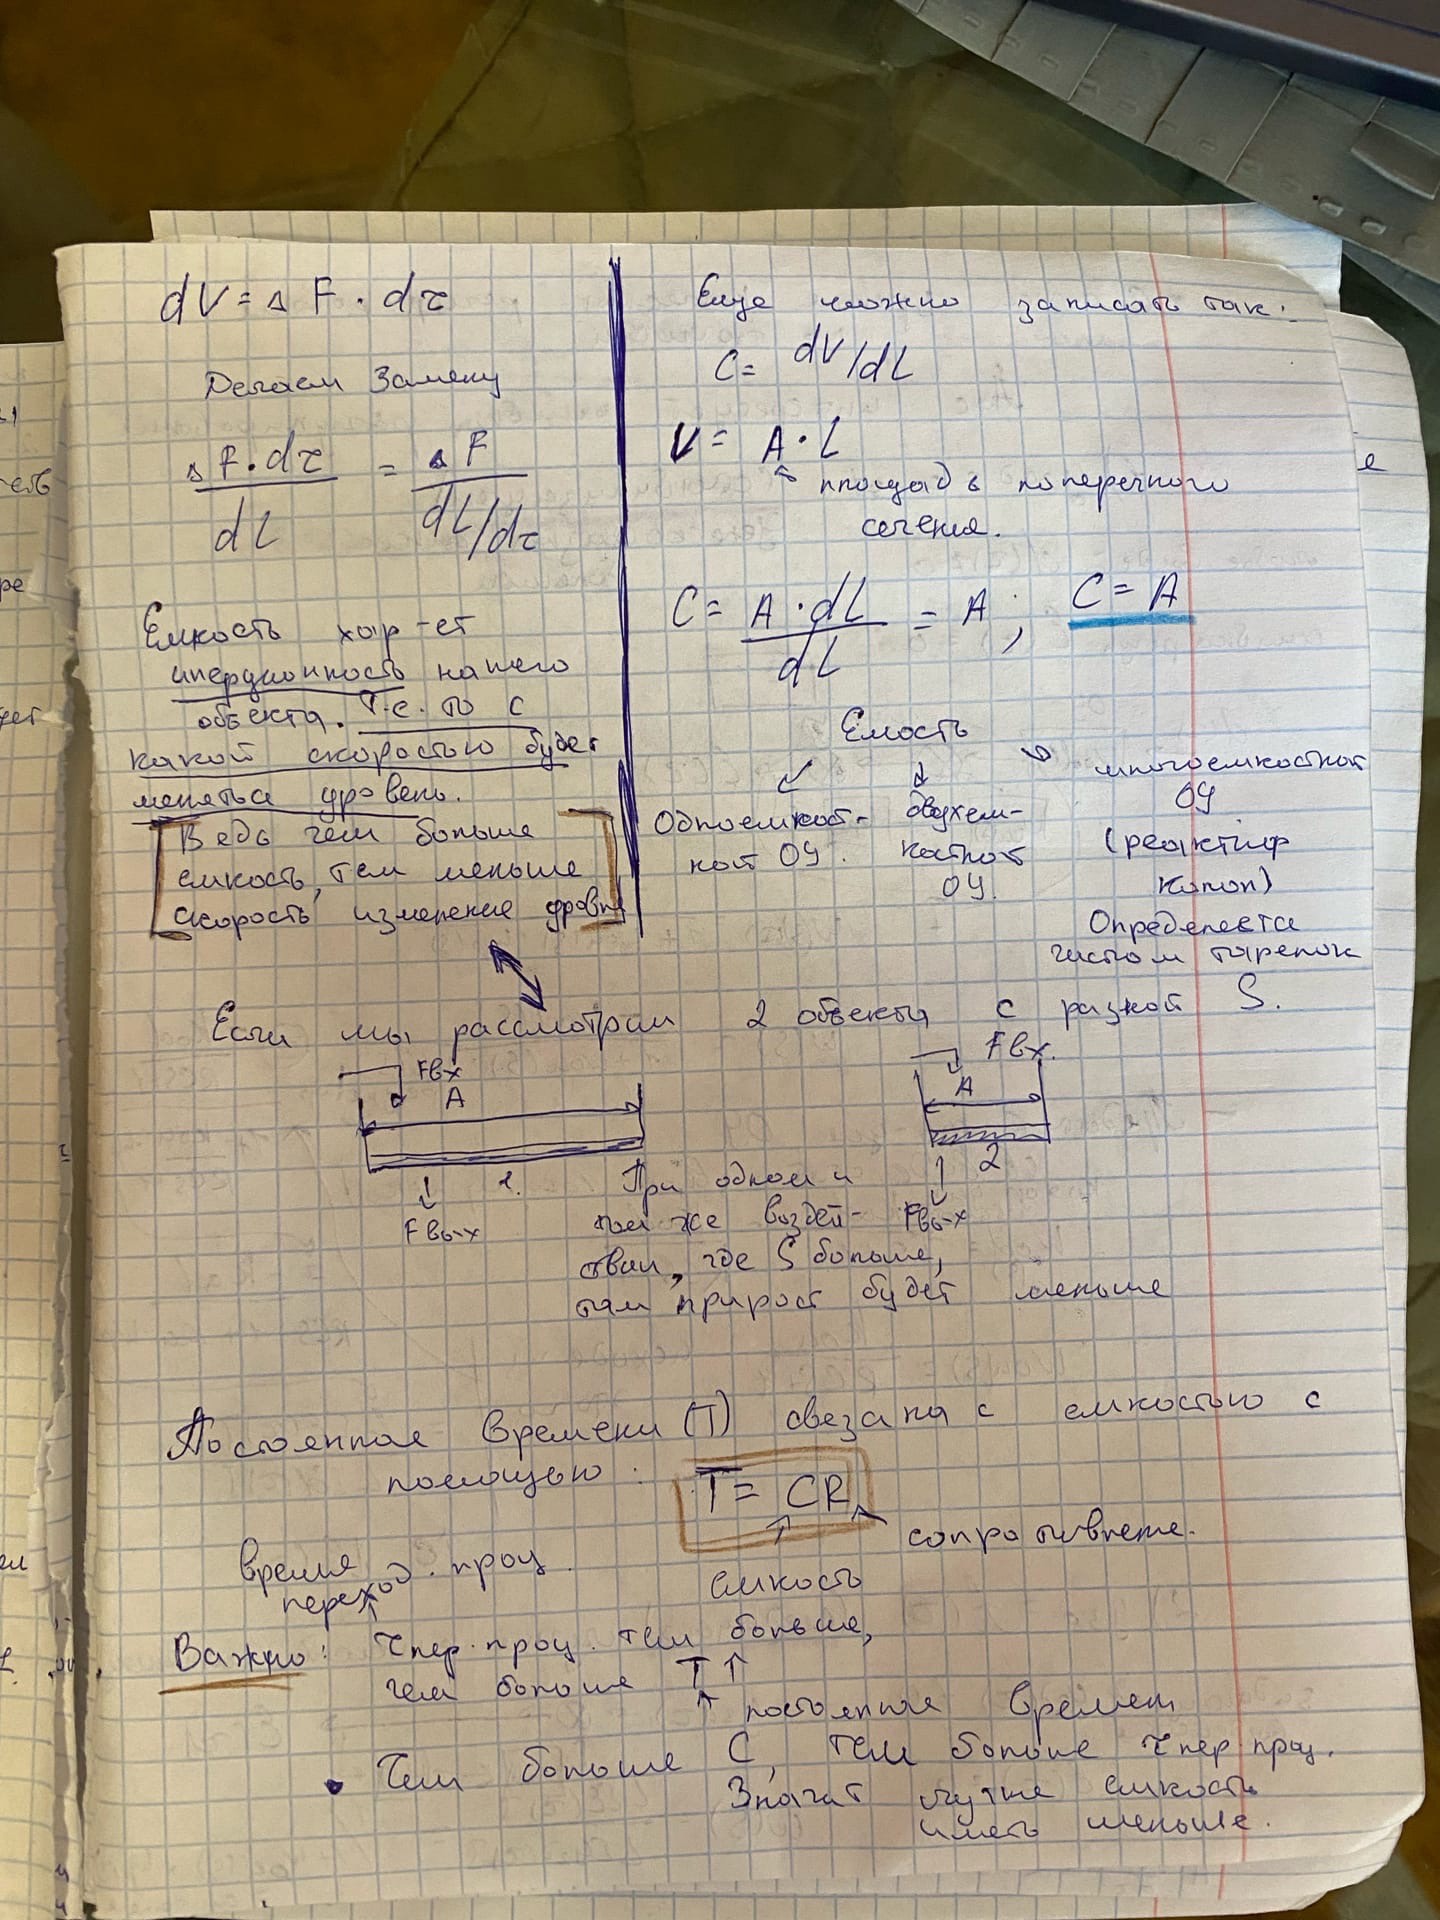 dV = Δ F · dτ
Делаем замену
Δ F · dτ / dL = Δ F / dL/dτ
Емкость хар-ет
инерционность нашего
объекта. Т.е. то с
какой скоростью будет
меняться уровень.
Ведь чем больше
емкость, тем меньше
скорость изменение уровня
Еще можно записать так:
C = dV/dL
V = A · L
площадь поперечного
сечения.
C = A · dL / dL = A ; C = A
Емость
Одноемкост-
ной ОУ.
двухем-
костной
ОУ.
многоемкостной
ОУ
(реактиф
колон)
Определеста
чистом тарелок
Если мы рассмотрим 2 объекта с разной S.
Fвх
A
1.
Fвых
Fвх.
A
2
Fвых
При одном и
том же воздей-
ствии, где S больше,
там прирост будет меньше
Постоянная времени (T) связана с емкостью с
помощью: T = CR
сопротивление.
емкость
время
переход. проц.
Важно: τпер. проц. тем больше,
чем больше T ↑
постоянная времени
• Чем больше C, тем больше τпер. проц.
Значит лучше емкость
иметь меньше.